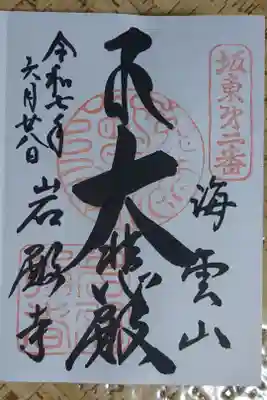 坂東㐧二番
海雲山
大悲殿
令和七年
六月廿八日
岩殿寺